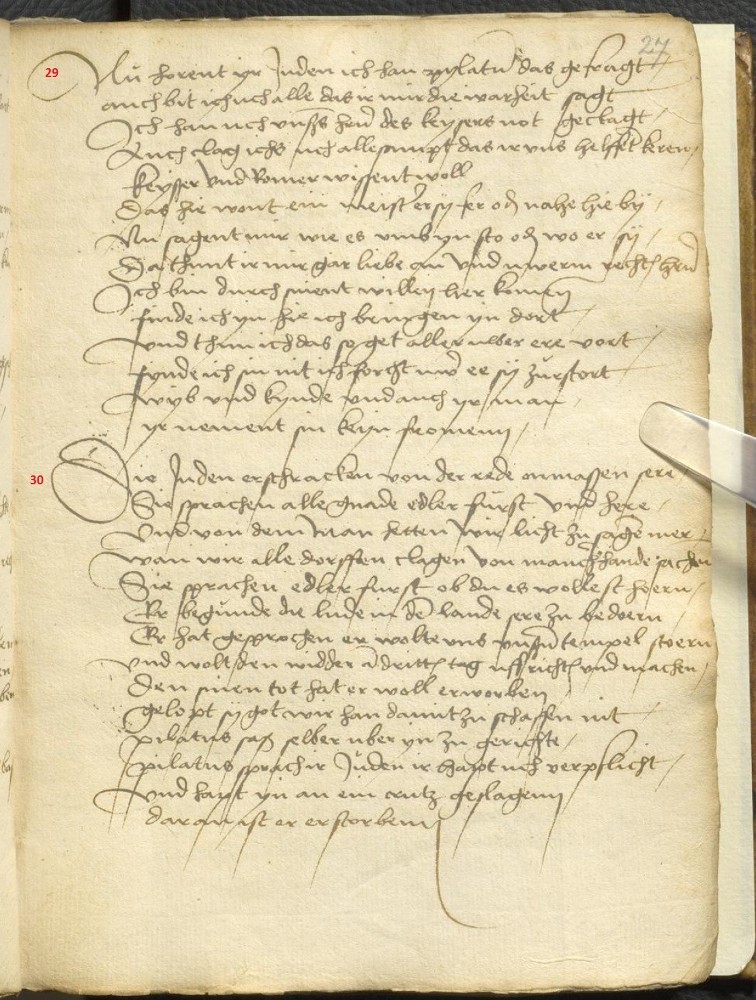 27
29
Nu horent yr Juden ich han pylatu das gefragt
auch bit ich uch alle das ir mir die warheit sagt
Ich han uch unsers hern des keysers not geclagt
Auch clag ichs uch allesampt das ir uns helffet keren
keysser und Romer wissent woll
Das hie wont ein meister sy fer od nahe hie by
Nu sagent mir wie es umb yn sto od wo er sy
Da thunt ir mir gar liebe an und uwerm rechten hern
Ich bin durch sinent willen her komen
finde ich yn hie ich bringen yn dort
und thun ich das so get aller uwer ere vort
fynde ich sin nit ich forcht uwer ee sy zurstort
wyb und kynde und auch yr man
yr nement sin keyn fromenn
30
Die Juden erschracken von der rede onmassen sere
Sie sprachen alle gnade edler furst und here
Und von dem man hetten wir licht zu sagen mer
wan wir alle dorffen clagen von mancherhande sachen
Sie sprachen edler furst ob du es wollest hoern
Er begunde die lude in dem lande sere zu bedoern
Er hat gesprochen er wolte uns unsern tempel stoern
und wolt den widder am dritten tag uffrichten und machen
Den sinen tot hat er woll erworben
gelopt sy got wir han damit zu schaffen nit
pilatus sass selber uber yn zu gerichte
pilatus sprach ir Juden ir hapt uch verpflicht
und hapt yn an ein crutz geslagenn
daran ist er erstorbenn